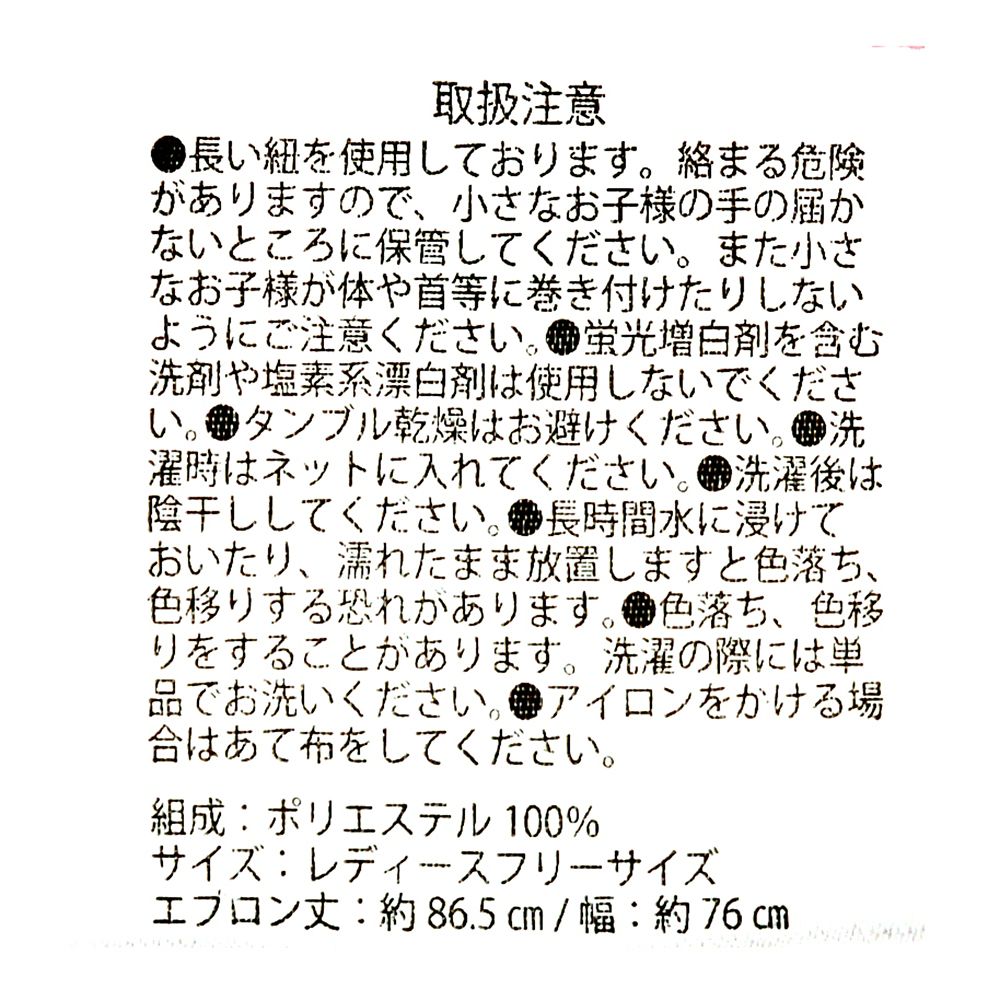 取扱注意
●長い紐を使用しております。絡まる危険
がありますので、小さなお子様の手の届か
ないところに保管してください。また小さ
なお子様が体や首等に巻き付けたりしない
ようにご注意ください。●蛍光増白剤を含む
洗剤や塩素系漂白剤は使用しないでくださ
い。●タンブル乾燥はお避けください。●洗
濯時はネットに入れてください。●洗濯後は
陰干ししてください。●長時間水に浸けて
おいたり、濡れたまま放置しますと色落ち、
色移りする恐れがあります。●色落ち、色移
りをすることがあります。洗濯の際には単
品でお洗いください。●アイロンをかける場
合はあて布をしてください。
組成：ポリエステル 100%
サイズ：レディースフリーサイズ
エプロン丈：約 86.5 cm / 幅：約 76 cm